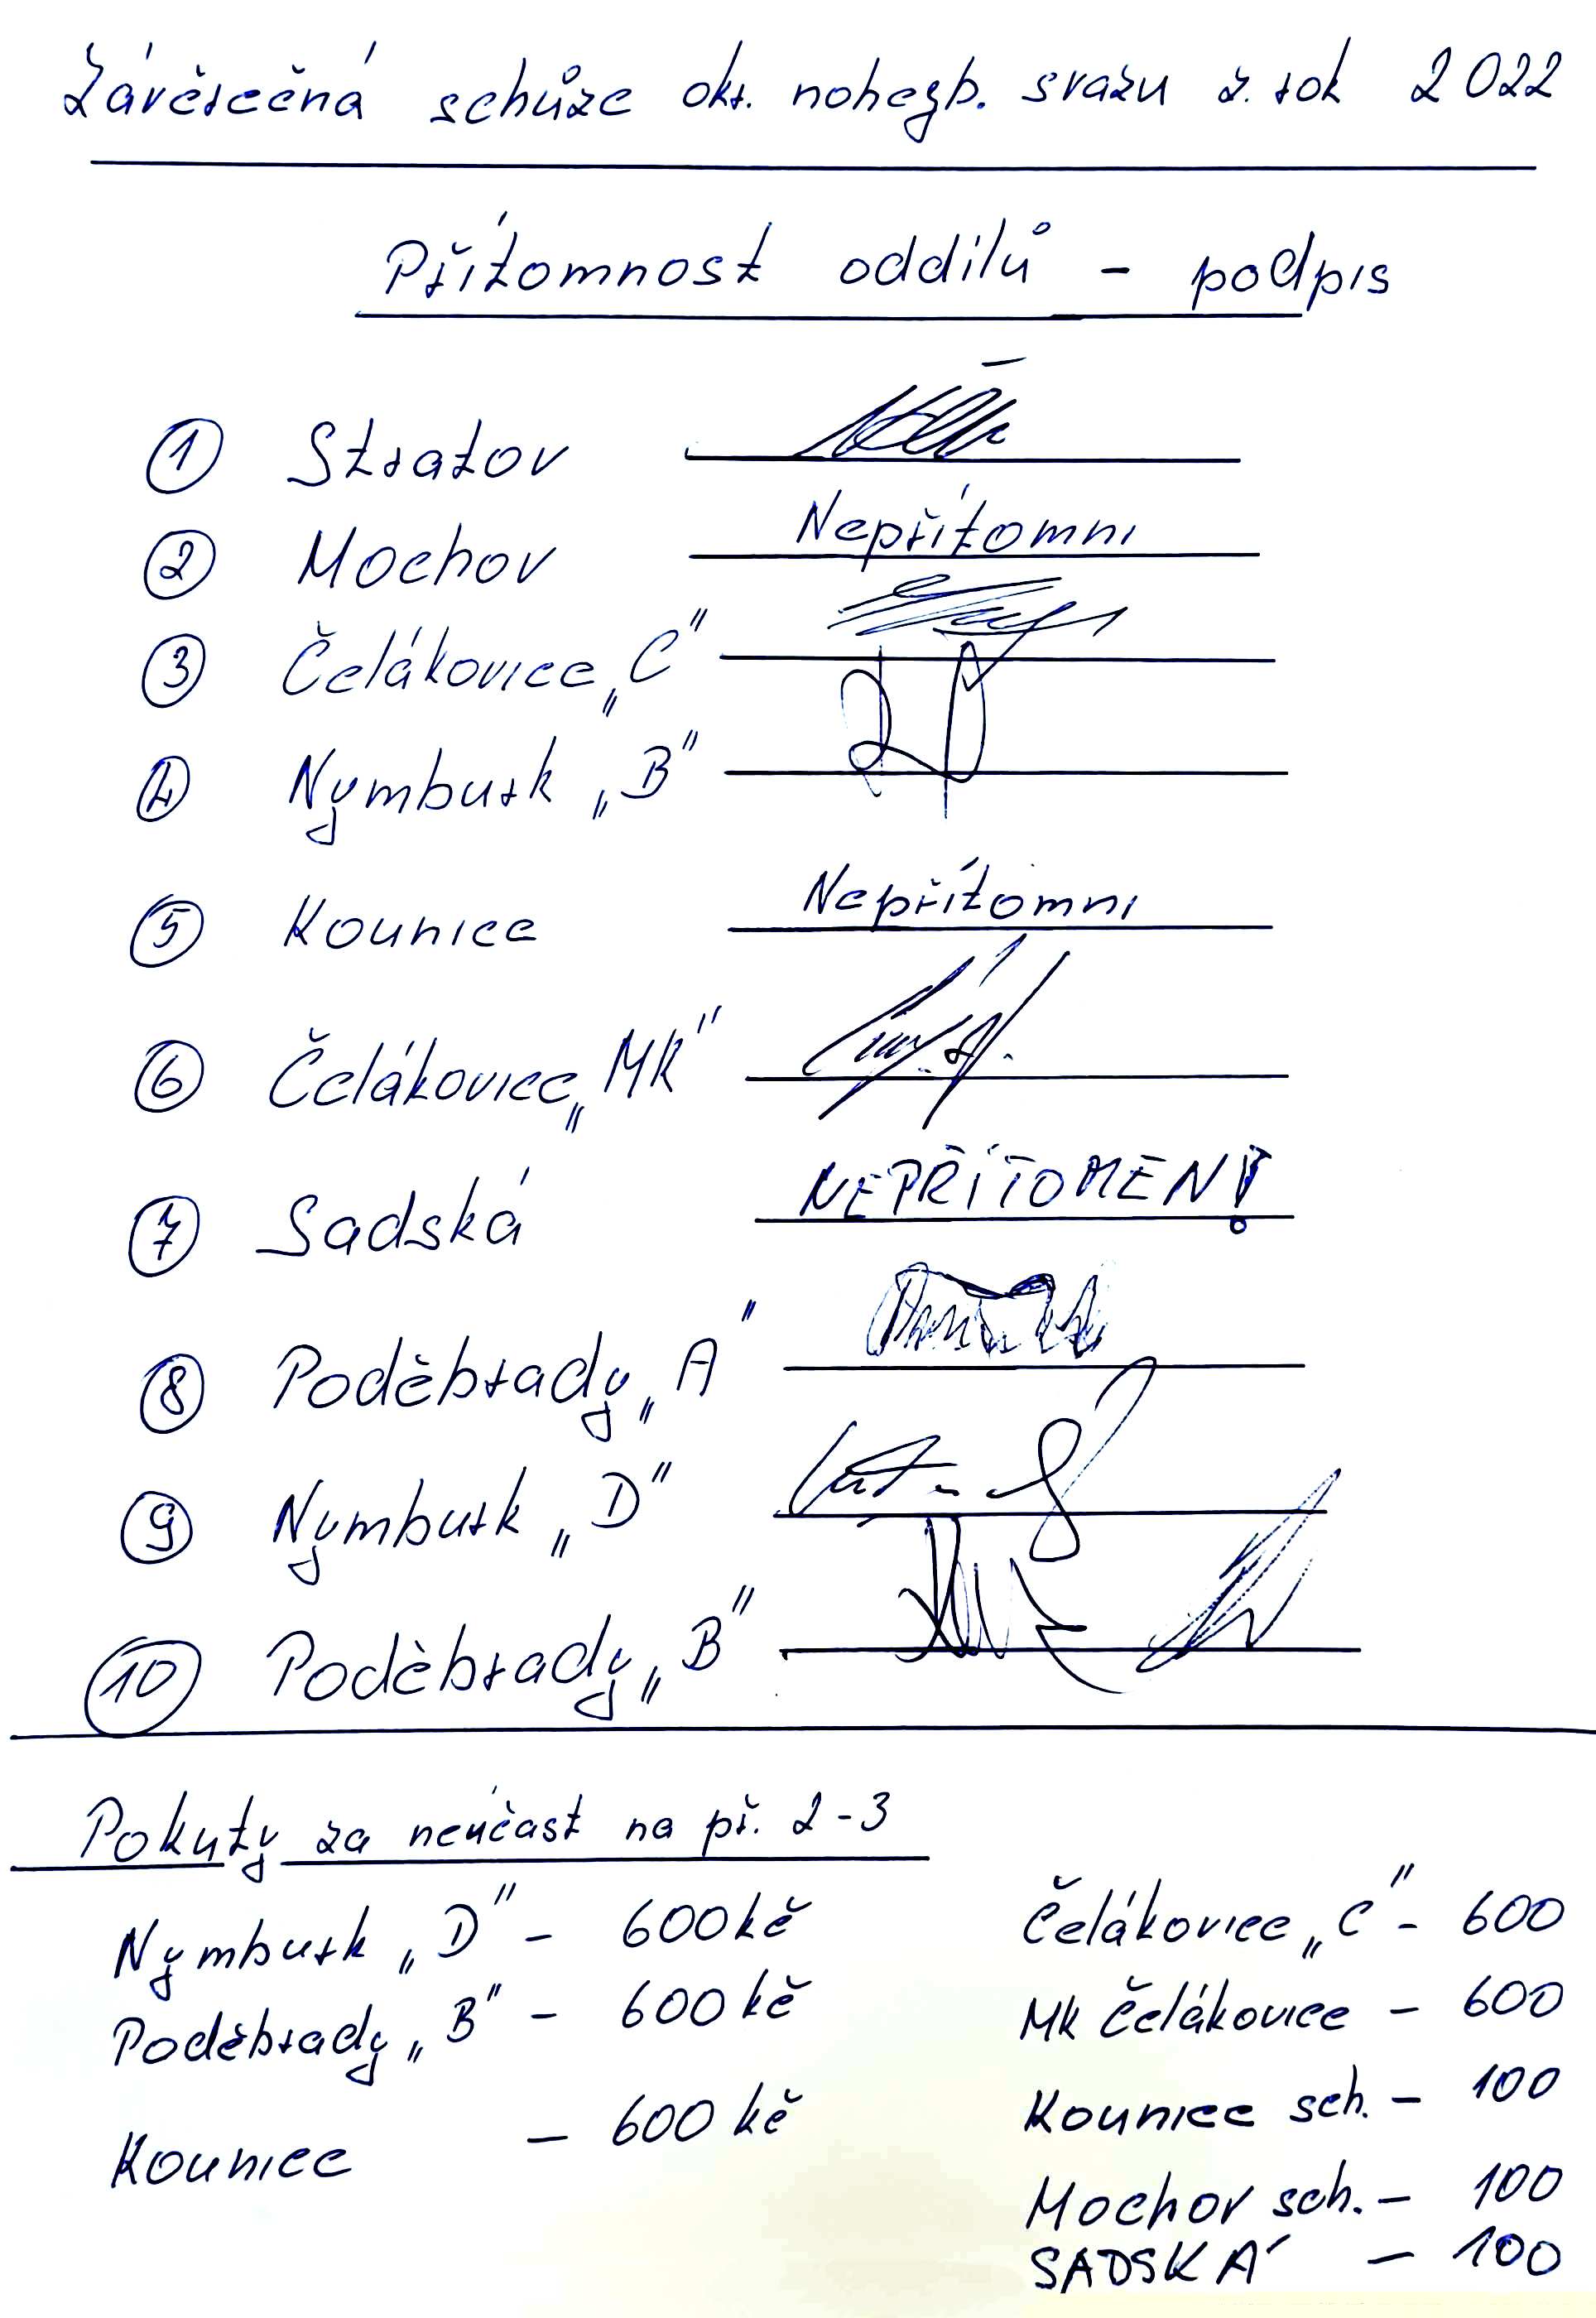 Závěrečná schůze okr. nohejb. svazu z. rok 2022
Přítomnost oddílů - podpis
1 Stratov
2 Mochov Nepřítomni
3 Čelákovice „C"
4 Nymburk „B"
5 Kounice Nepřítomni
6 Čelákovice „MK"
7 Sadská NEPŘÍTOMEN!
8 Poděbrady „A"
9 Nymburk „D"
10 Poděbrady „B"
Pokuty za neúčast na př. 2-3
Nymburk „D" - 600 kč
Poděbrady „B" - 600 kč
Kounice - 600 kč
Čelákovice „C" - 600
MK Čelákovice - 600
Kounice sch. - 100
Mochov sch. - 100
SADSKÁ - 100